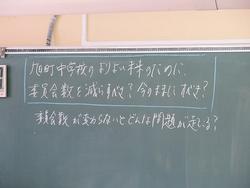 旭町中学校のよりよい未来のために、
委員会数を減らすべき？今のままにすべき？
委員会数が変わらないとどんな問題が起きている？